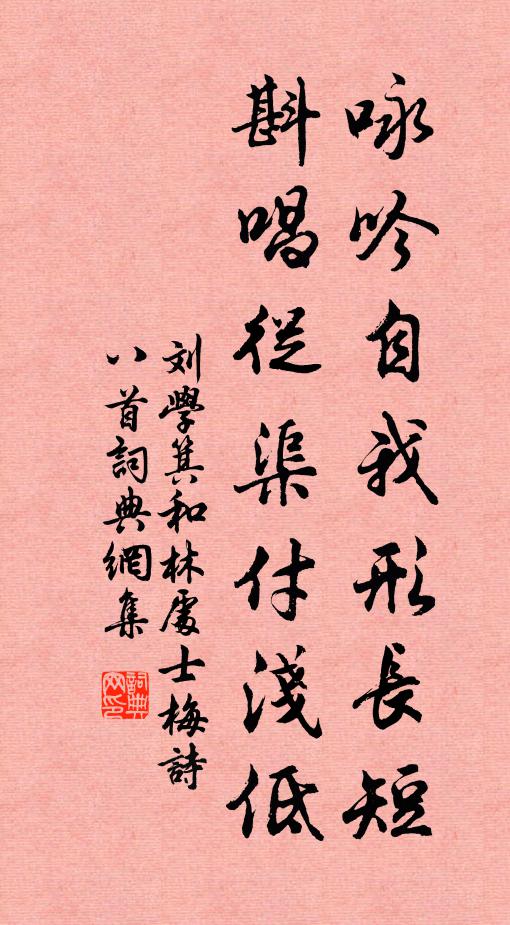 咏吟自我形長短
斟唱從渠付淺低
刘學箕和林處士梅詩
八首詞典網集
詞典
网印